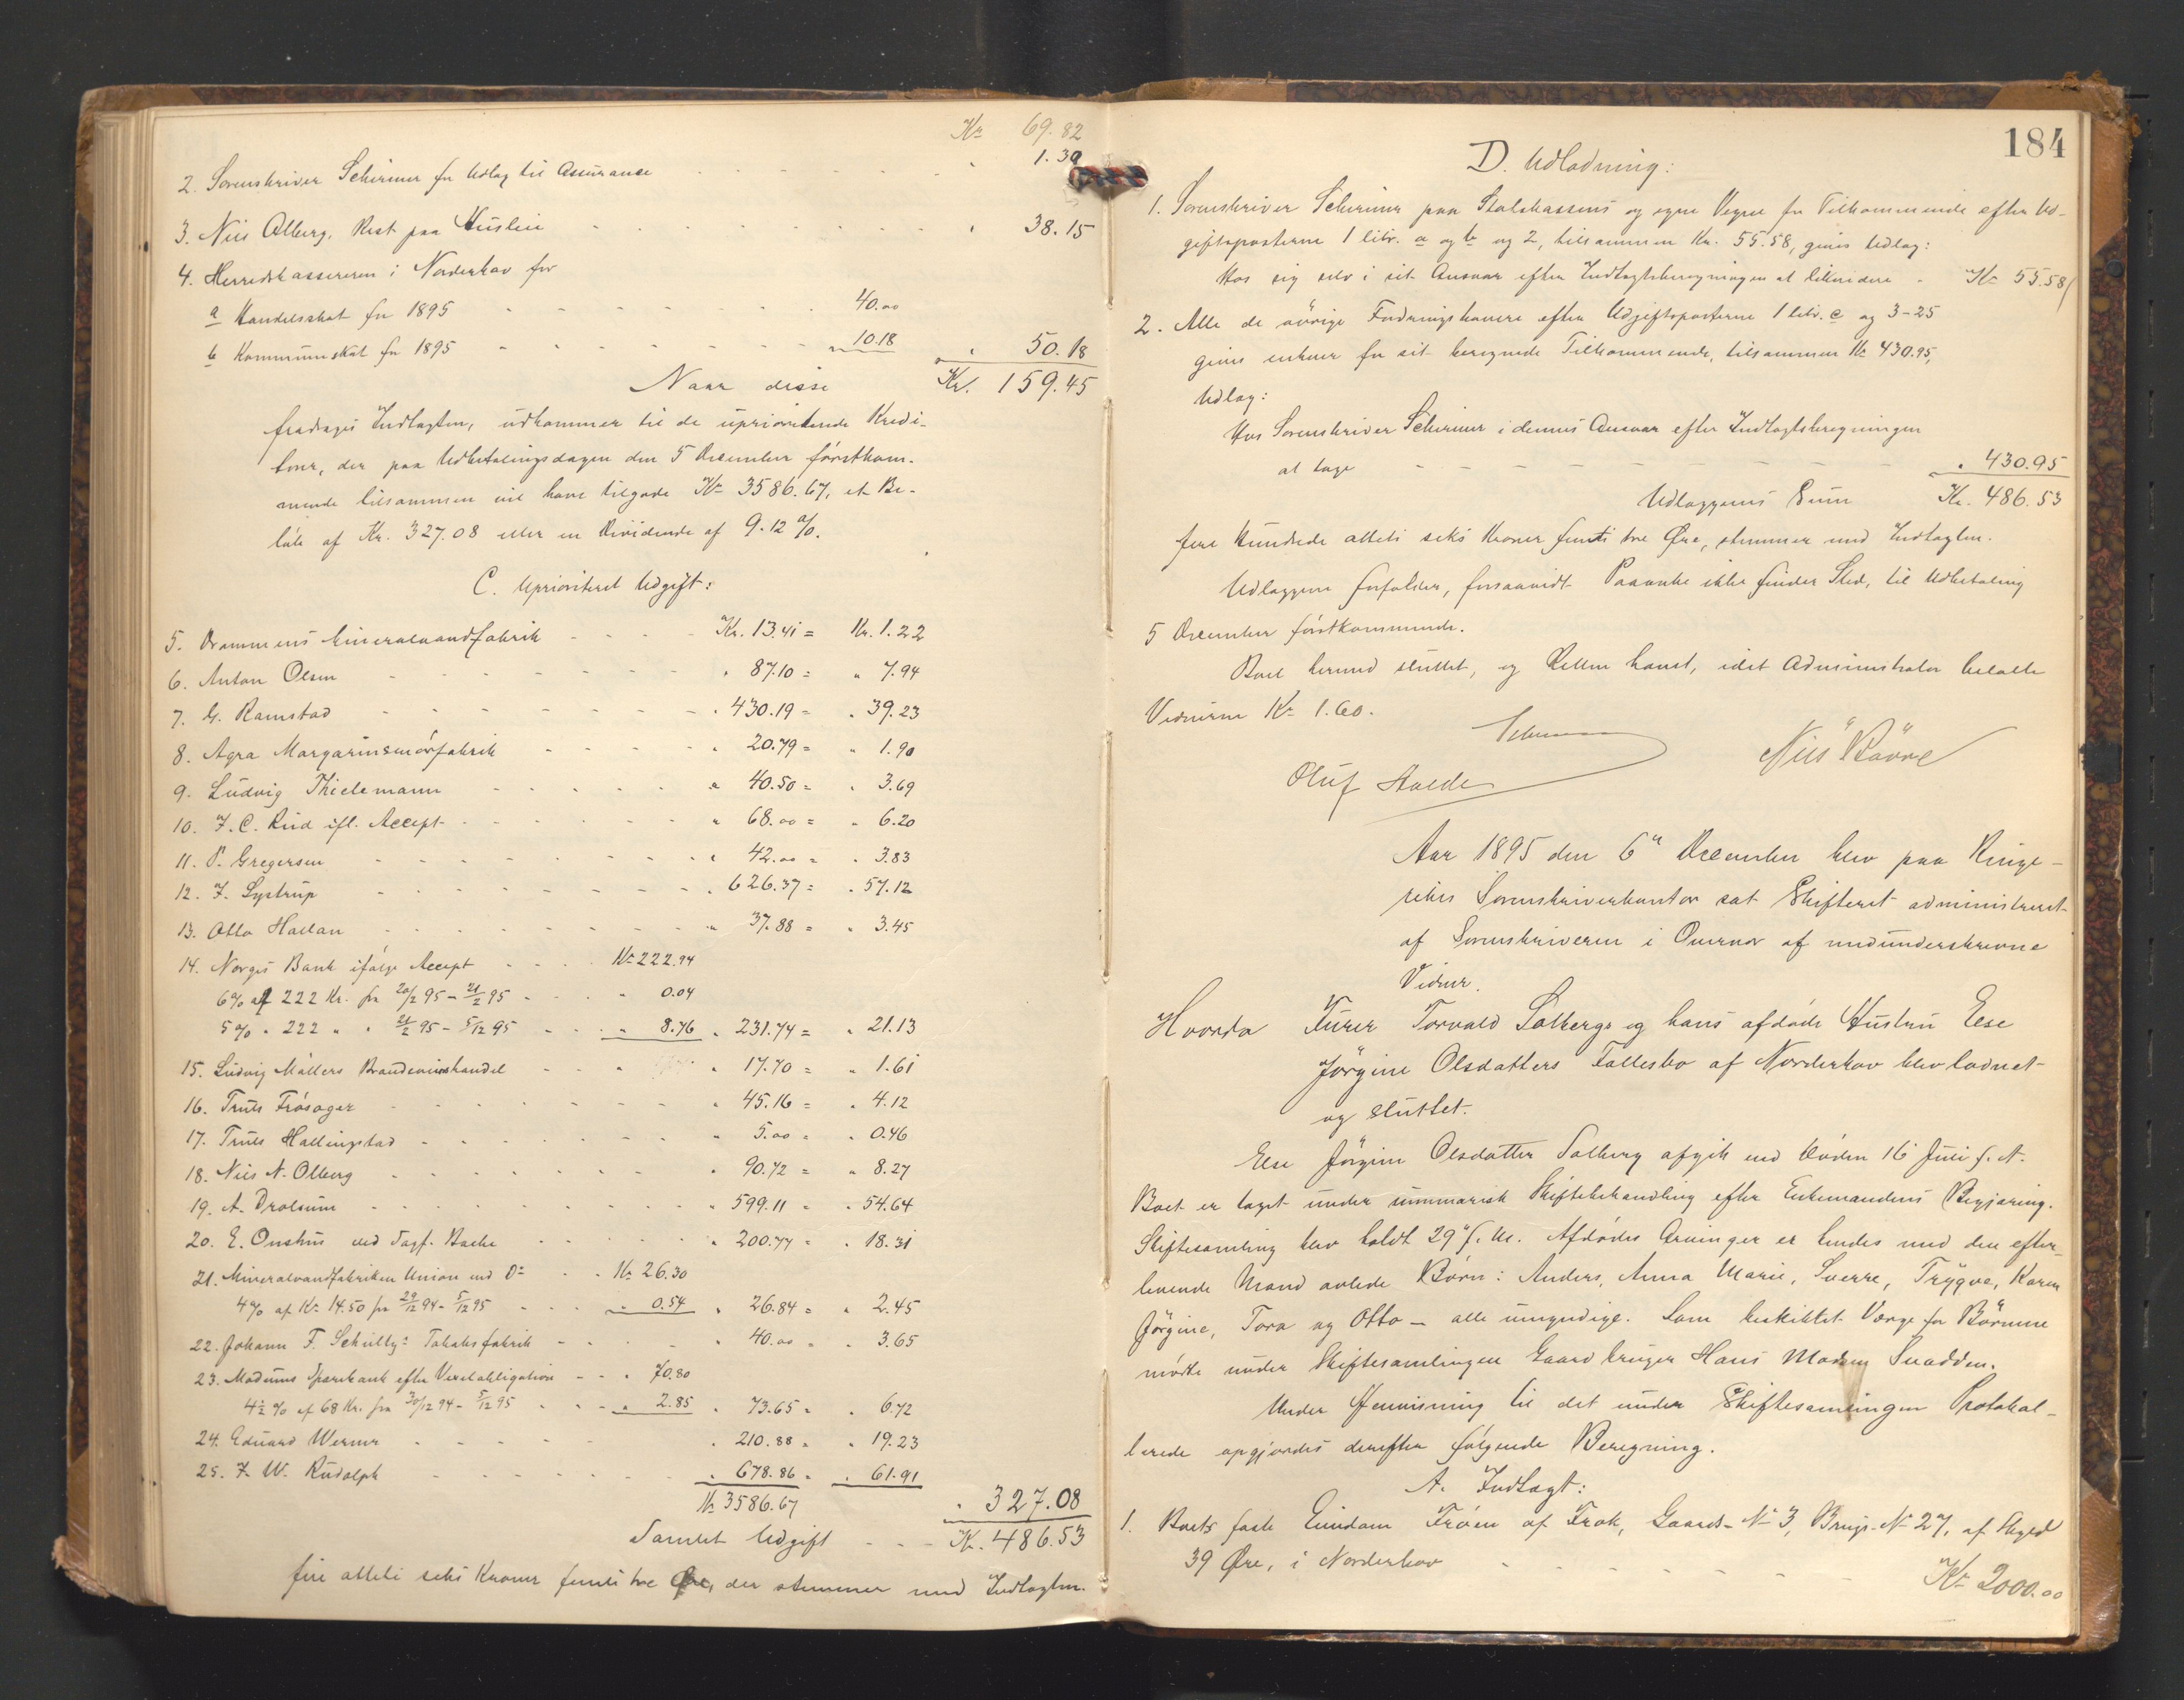 Kr. 69.82
2. Sorenskriver Schirmer for Udlæg til Assurance - - - - - " 1.30
3. Nils Olberg, Rest paa Husleie - - - - - " 38.15
4. Herredskassereren i Norderhov for
a Handelsskat for 1895 - - - - - 40.00
b Kommuneskat for 1895 - - - - - " 10.18 " 50.18
Naar disse Kr. 159.45
fradrages Indtægten, udkommer til de uprioriterede Kredi-
torer, der paa Udbetalingsdagen den 5 December førstkom-
mende tilsammen vil have tilgode Kr. 3586.67, et Be-
løb af Kr. 327.08 eller en Dividende af 9.12 %.
C. Uprioriteret Udgift:
5. Drammens Mineralvandfabrik - - - Kr. 13.41 = Kr. 1.22
6. Anton Olsen - - - - - " 87.10 = " 7.94
7. G. Ramstad - - - - - " 430.19 = " 39.23
8. Agra Margarinsmørfabrik - - - " 20.79 = " 1.90
9. Ludvig Thielemann - - - - " 40.50 = " 3.69
10. F. C. Rud ifl. Accept - - - - " 68.00 = " 6.20
11. P. Gregersen - - - - - " 42.00 = " 3.83
12. F. Lystrup - - - - - " 626.37 = " 57.12
13. Otto Haslan - - - - - " 37.88 = " 3.45
14. Norges Bank ifølge Accept - - - Kr. 222.94
6 % af 222 Kr. fra 20/2 95 - 21/2 95 - - " 0.04
5 % " 222 " " 21/2 95 - 5/12 95 - - " 8.76 " 231.74 = " 21.13
15. Ludvig Møllers Brændevinshandel - - - " 17.70 = " 1.61
16. Truls Frøsager - - - - - " 45.16 = " 4.12
17. Truls Hallingstad - - - - - " 5.00 = " 0.46
18. Nils N. Olberg - - - - - " 90.72 = " 8.27
19. A. Drolsum - - - - - " 599.11 = " 54.64
20. E. Onshus ved Sagf. Bache - - - " 200.77 = " 18.31
21. Mineralvandfabriken Union ved Do - - Kr. 26.30
4 % af Kr. 14.50 fra 29/12 94 - 5/12 95 - - " 0.54 " 26.84 = " 2.45
22. Johann F. Schultz's Tobaksfabrik - - - " 40.00 = " 3.65
23. Modums Sparebank efter Vexelobligation - - " 70.80
4½ % af 68 Kr. fra 30/12 94 - 5/12 95 - - " 2.85 " 73.65 = " 6.72
24. Eduard Werner - - - - - " 210.88 = " 19.23
25. F. W. Rudolph - - - - - " 678.86 = " 61.91
Kr. 3586.67 " 327.08
Samlet Udgift - - - Kr. 486.53
fire atteti seks Kroner femti tre Øre, der stemmer med Indtægten.
184
D. Udlodning:
1. Sorenskriver Schirmer paa Statskassens og egne Vegne for Tilkommende efter Ud-
giftsposterne 1 litr. a og b og 2, tilsammen Kr. 55.58, gives Udlæg:
Hos sig selv i sit Ansvar efter Indtægtsberegningen at likvidere - Kr. 55.58
2. Alle de øvrige Fordringshavere efter Udgiftsposterne 1 litr. c og 3-25
gives enhver for sit beregnede Tilkommende, tilsammen Kr. 430.95,
Udlæg:
Hos Sorenskriver Schirmer i dennes Ansvar efter Indtægtsberegningen
at tage - - - - - " 430.95
Udlæggenes Sum Kr. 486.53
fire Hundrede atteti seks Kroner femti tre Øre, stemmer med Indtægten.
Udlæggene forfalder, forsaavidt Paaanke ikke finder Sted, til Udbetaling
5 December førstkommende.
Boet hermed sluttet, og Retten hævet, idet Administrator betalte
Vidnerne Kr. 1.60.
Schirmer
Oluf Hvede Nils Bövre
Aar 1895 den 6te December blev paa Ringe-
rikes Sorenskriverkontor sat Skifteret administreret
af Sorenskriveren i Overvær af medunderskrevne
Vidner.
Hvorda Furer Torvald Solbergs og hans afdøde Hustru Else
Jørgine Olsdatters Fællesbo af Norderhov blev lodnet
og sluttet.
Else Jørgine Olsdatter Solberg afgik ved Døden 16 Juli f. A.
Boet er taget under summarisk Skiftebehandling efter Enkemandens Begjæring.
Skiftesamling blev holdt 29' f. M. Afdødes Arvinger er hendes med den efter-
levende Mand avlede Børn: Anders, Anna Marie, Sverre, Trygve, Karen
Jørgine, Tora og Otto - alle umyndige. Som beskikket Værge for Børnene
mødte under Skiftesamlingen Gaardbruger Hans Madsen Snadden.
Under Henvisning til det under Skiftesamlingen Protokol-
lerede opgjordes derefter følgende Beregning.
A. Indtægt:
1. Boets faste Eiendom Frøen af Frok, Gaards-No 3, Brugs-No 27, af Skyld
39 Øre, i Norderhov - - - - - Kr. 2000.00